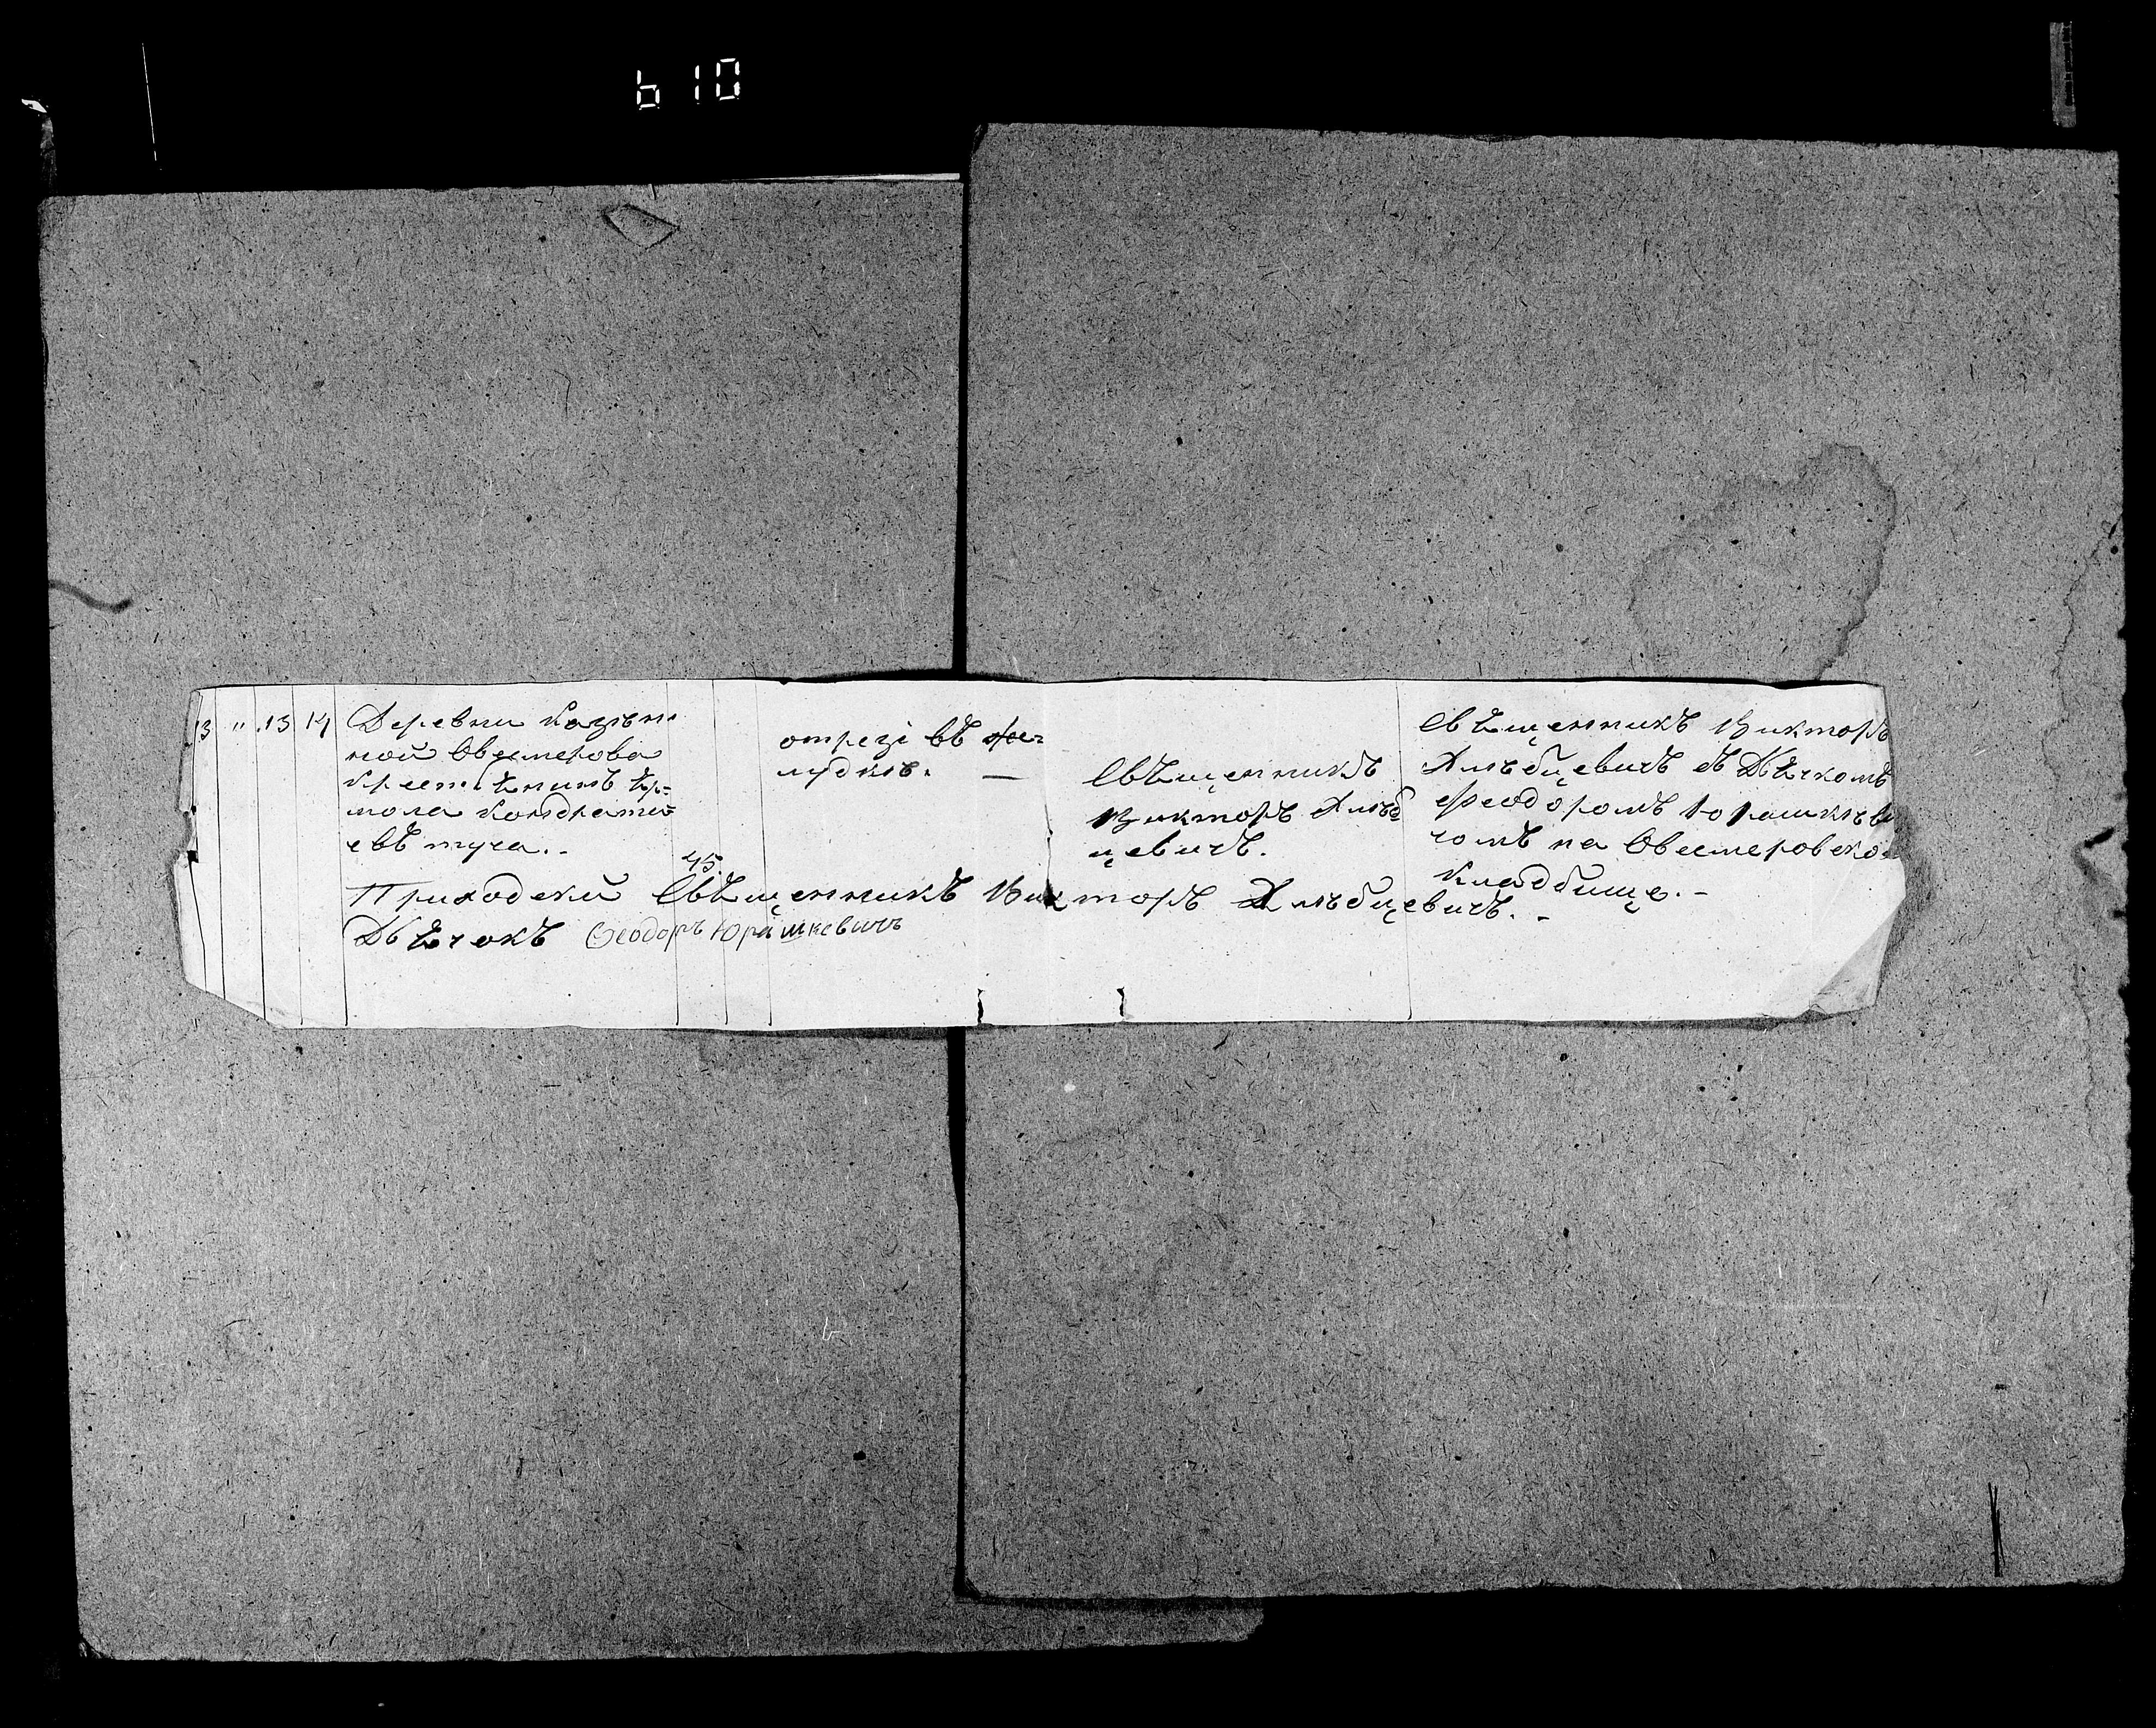 610
13 " 13 14
Деревни Казѣн
ной Овсемерова
крестьянинъ Ер=
мола Кондрате=
евъ туча.-
45.
отрезі въ же=
лудкѣ. —
Священникъ
Викторъ Хлѣб
цевичъ.
Священникъ Викторъ
Хлѣбцевичъ съ Дьячкомъ
Феодоромъ Юрашкеви
чомъ на Овсемеровско
кладбище.-
Приходский Священникъ Викторъ Хлѣбцевичъ.-
Дьячокъ Ѳеодоръ Юрашкевичъ